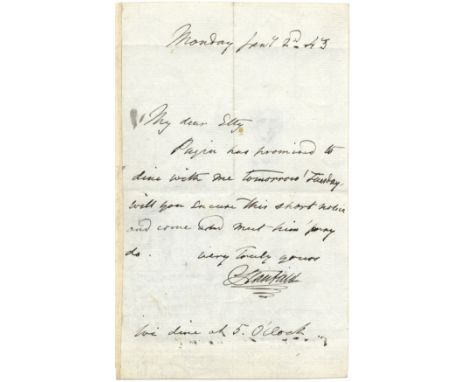 Monday Jany 2nd 43
My dear Etty
Pugin has promised to
dine with me tomorrow Tuesday.
will you excuse this short notice
and come and meet him pray
do. very truly yours
C Stanfield
We dine at 5. O'Clock